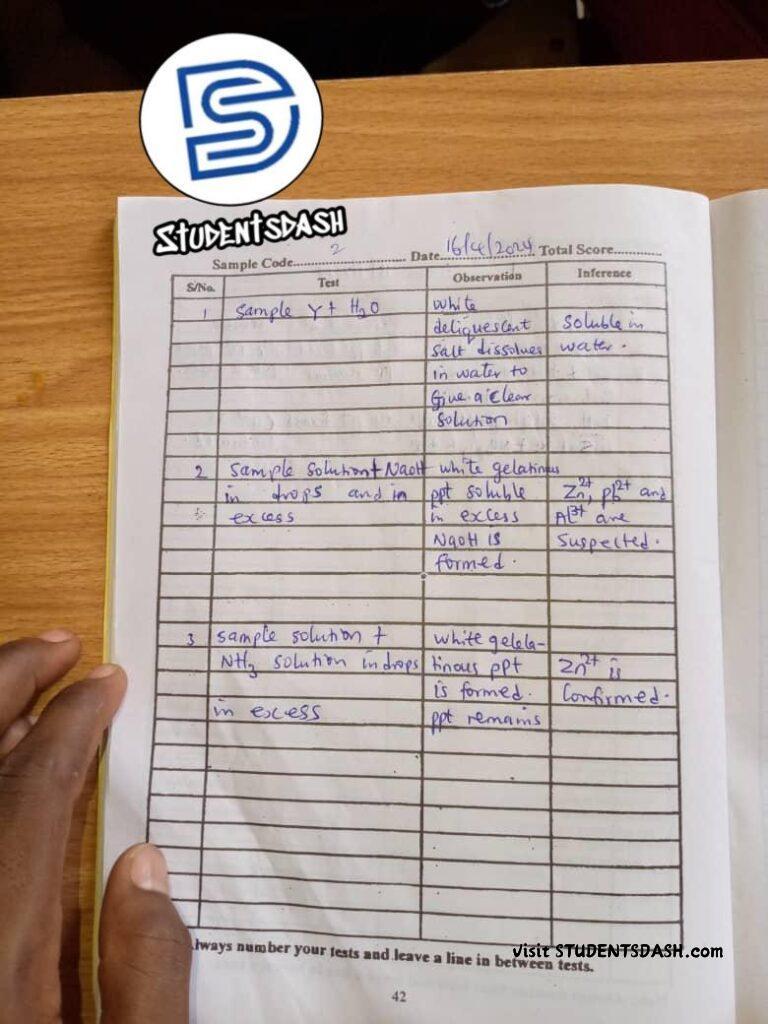 STUDENTSDASH
Sample Code 2 Date 16/4/2024 Total Score
S/No. Test Observation Inference
1 Sample Y + H2O White
deliquescent Soluble in
salt dissolves water.
in water to
Give a clear
solution
2 Sample solution + NaOH white gelatinus
in drops and in ppt soluble Zn2+, Pb2+ and
excess in excess Al3+ are
NaOH is suspected.
formed.
3 Sample solution + white gelela-
NH3 solution in drops tinous ppt Zn2+ is
is formed. Confirmed.
in excess ppt remains
Always number your tests and leave a line in between tests.
visit STUDENTSDASH.com
42